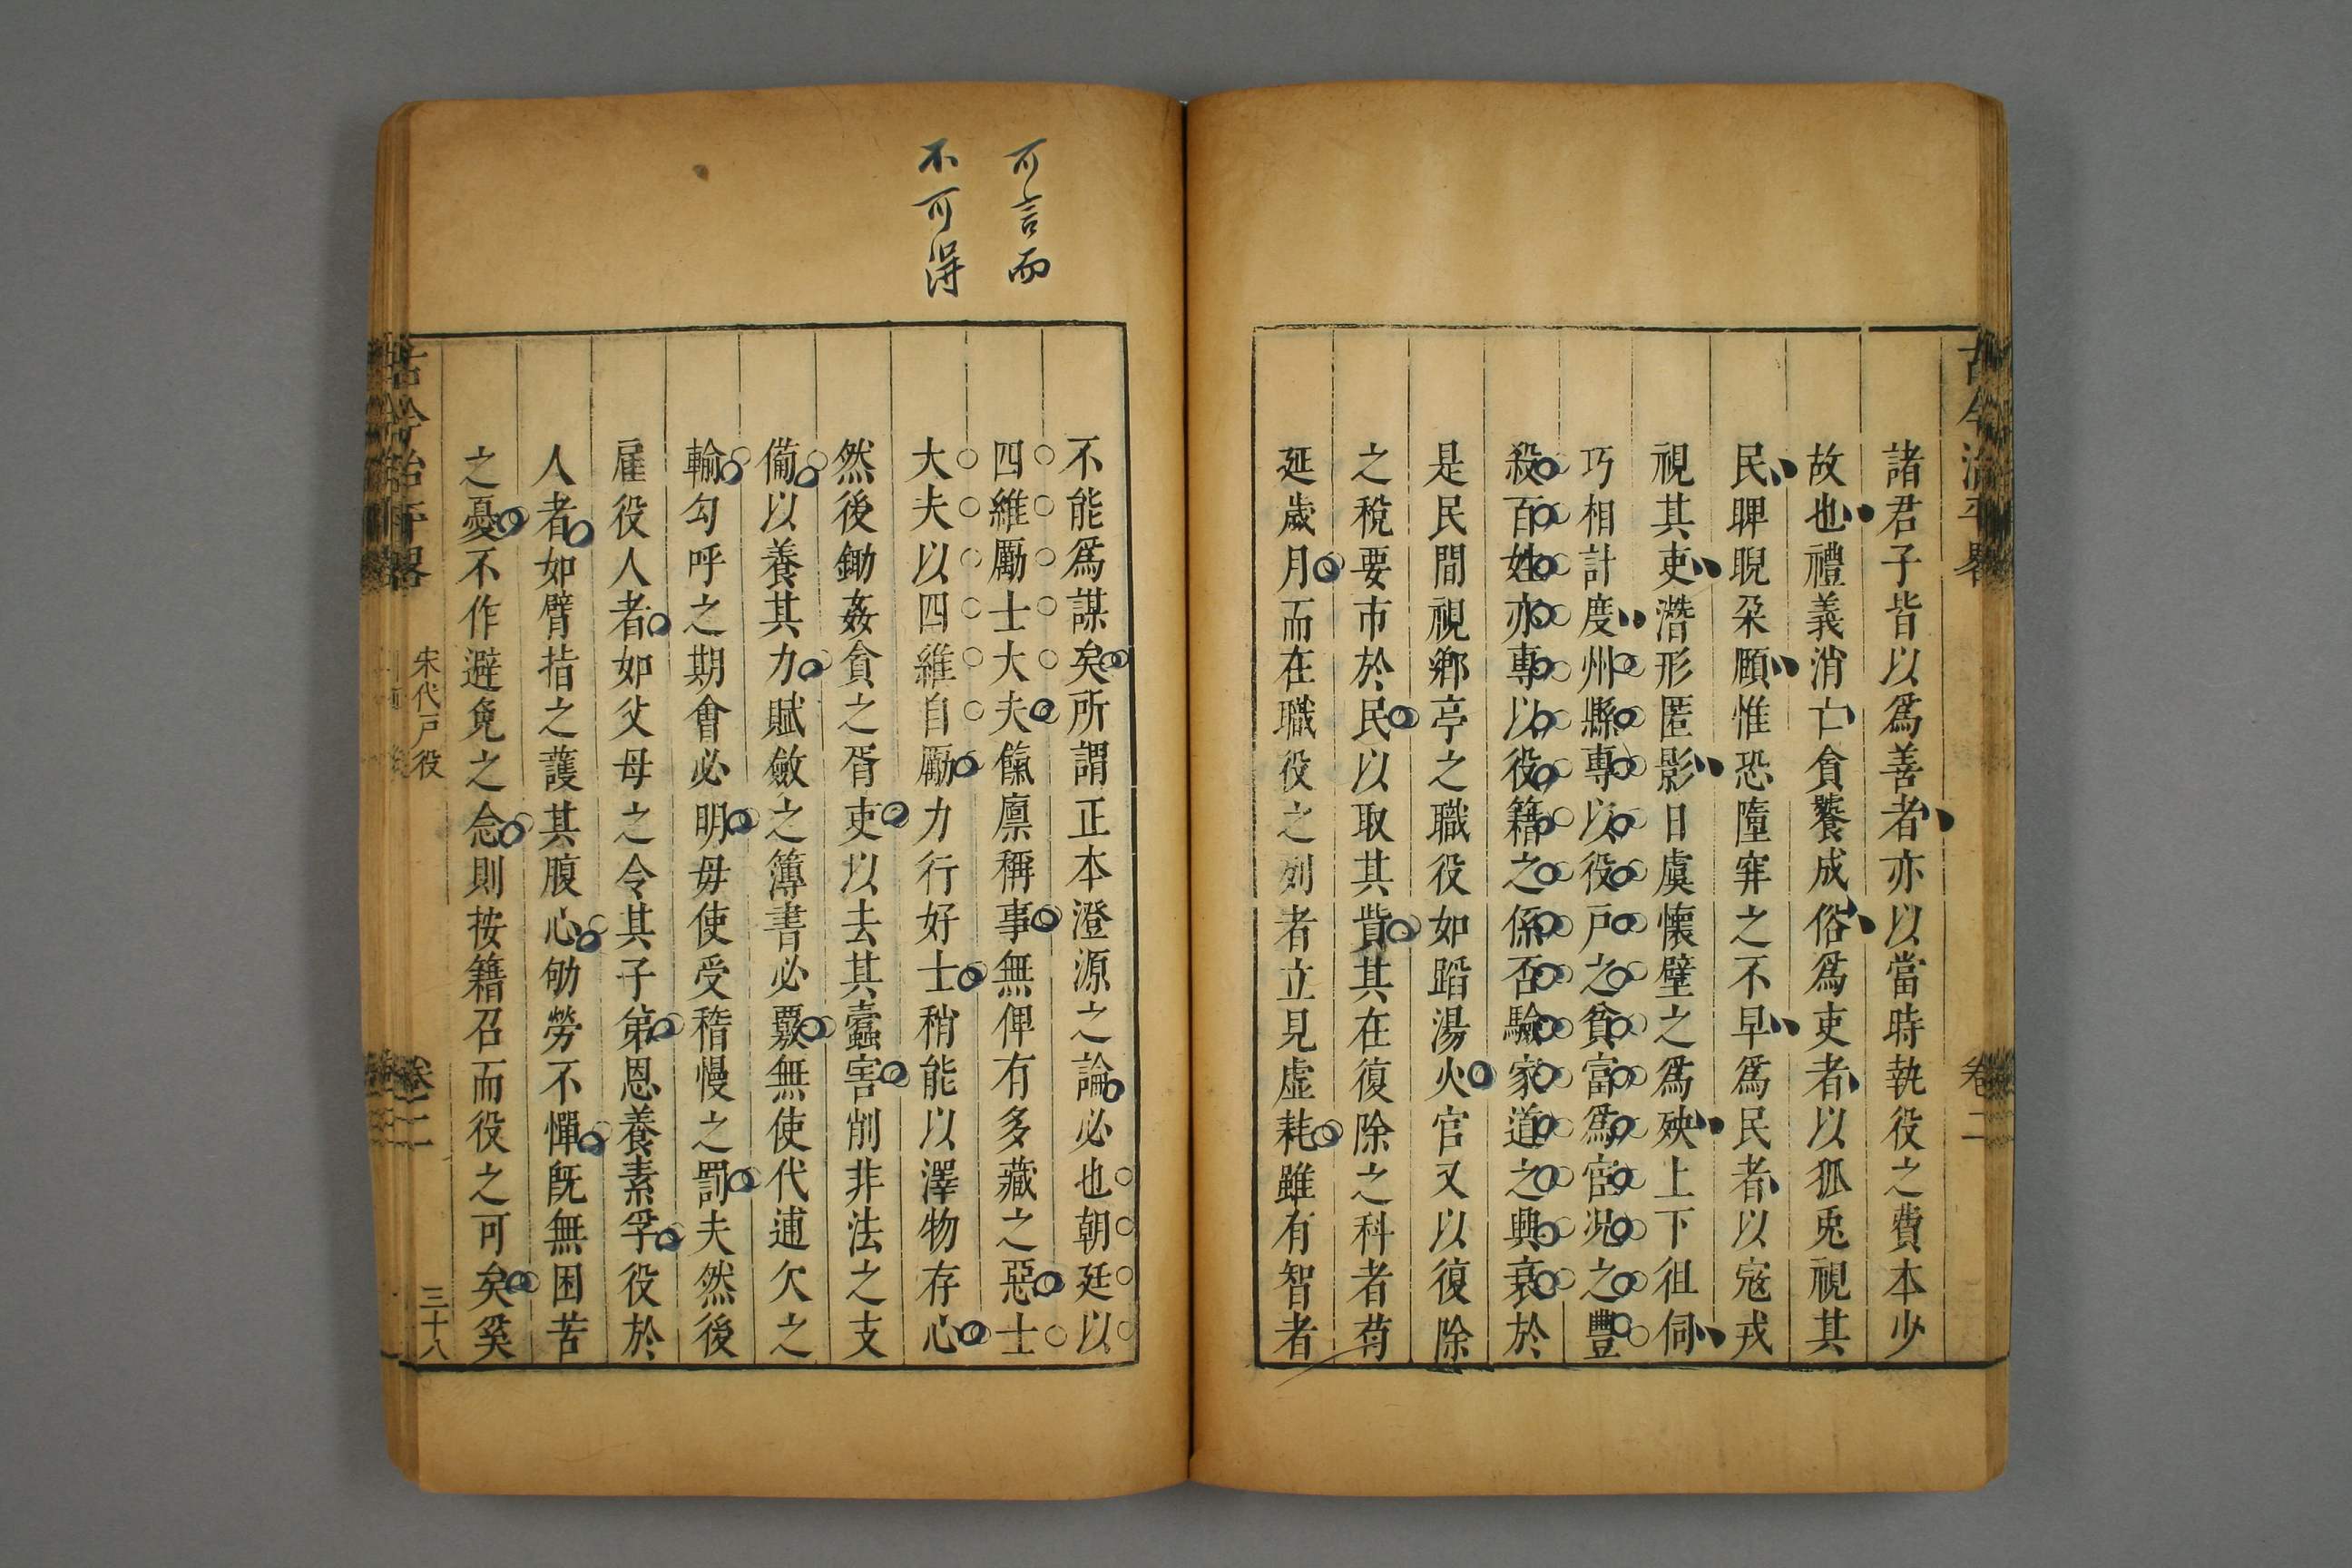 諸君子皆以爲善者亦以當時執役之費本少
故也禮義消亡貪饕成俗爲吏者以狐兎視其
民睥睨朶頤惟恐墮穽之不早爲民者以寇戎
視其吏潛形匿影日虞懷壁之爲殃上下狙伺
巧相計度州縣專以役戶之貧富爲宦况之豐
殺百姓亦專以役籍之係否驗家道之興衰於
是民間視鄕亭之職役如蹈湯火官又以復除
之稅要市於民以取其貲其在復除之科者苟
延歲月而在職役之列者立見虛耗雖有智者
古今治平畧
卷二
可言而
不可淂
不能爲謀矣所謂正本澄源之論必也朝廷以
四維勵士大夫餼廪稱事無俾有多藏之惡士
大夫以四維自勵力行好士稍能以澤物存心
然後鋤姦貪之胥吏以去其蠹害削非法之支
備以養其力賦斂之簿書必覈無使代逋欠之
輸勾呼之期會必明毋使受稽慢之罰夫然後
雇役人者如父母之令其子第恩養素孚役於
人者如臂指之護其腹心劬勞不憚旣無困苦
之憂不作避免之念則按籍召而役之可矣奚
宋代戸役
卷二
三十八